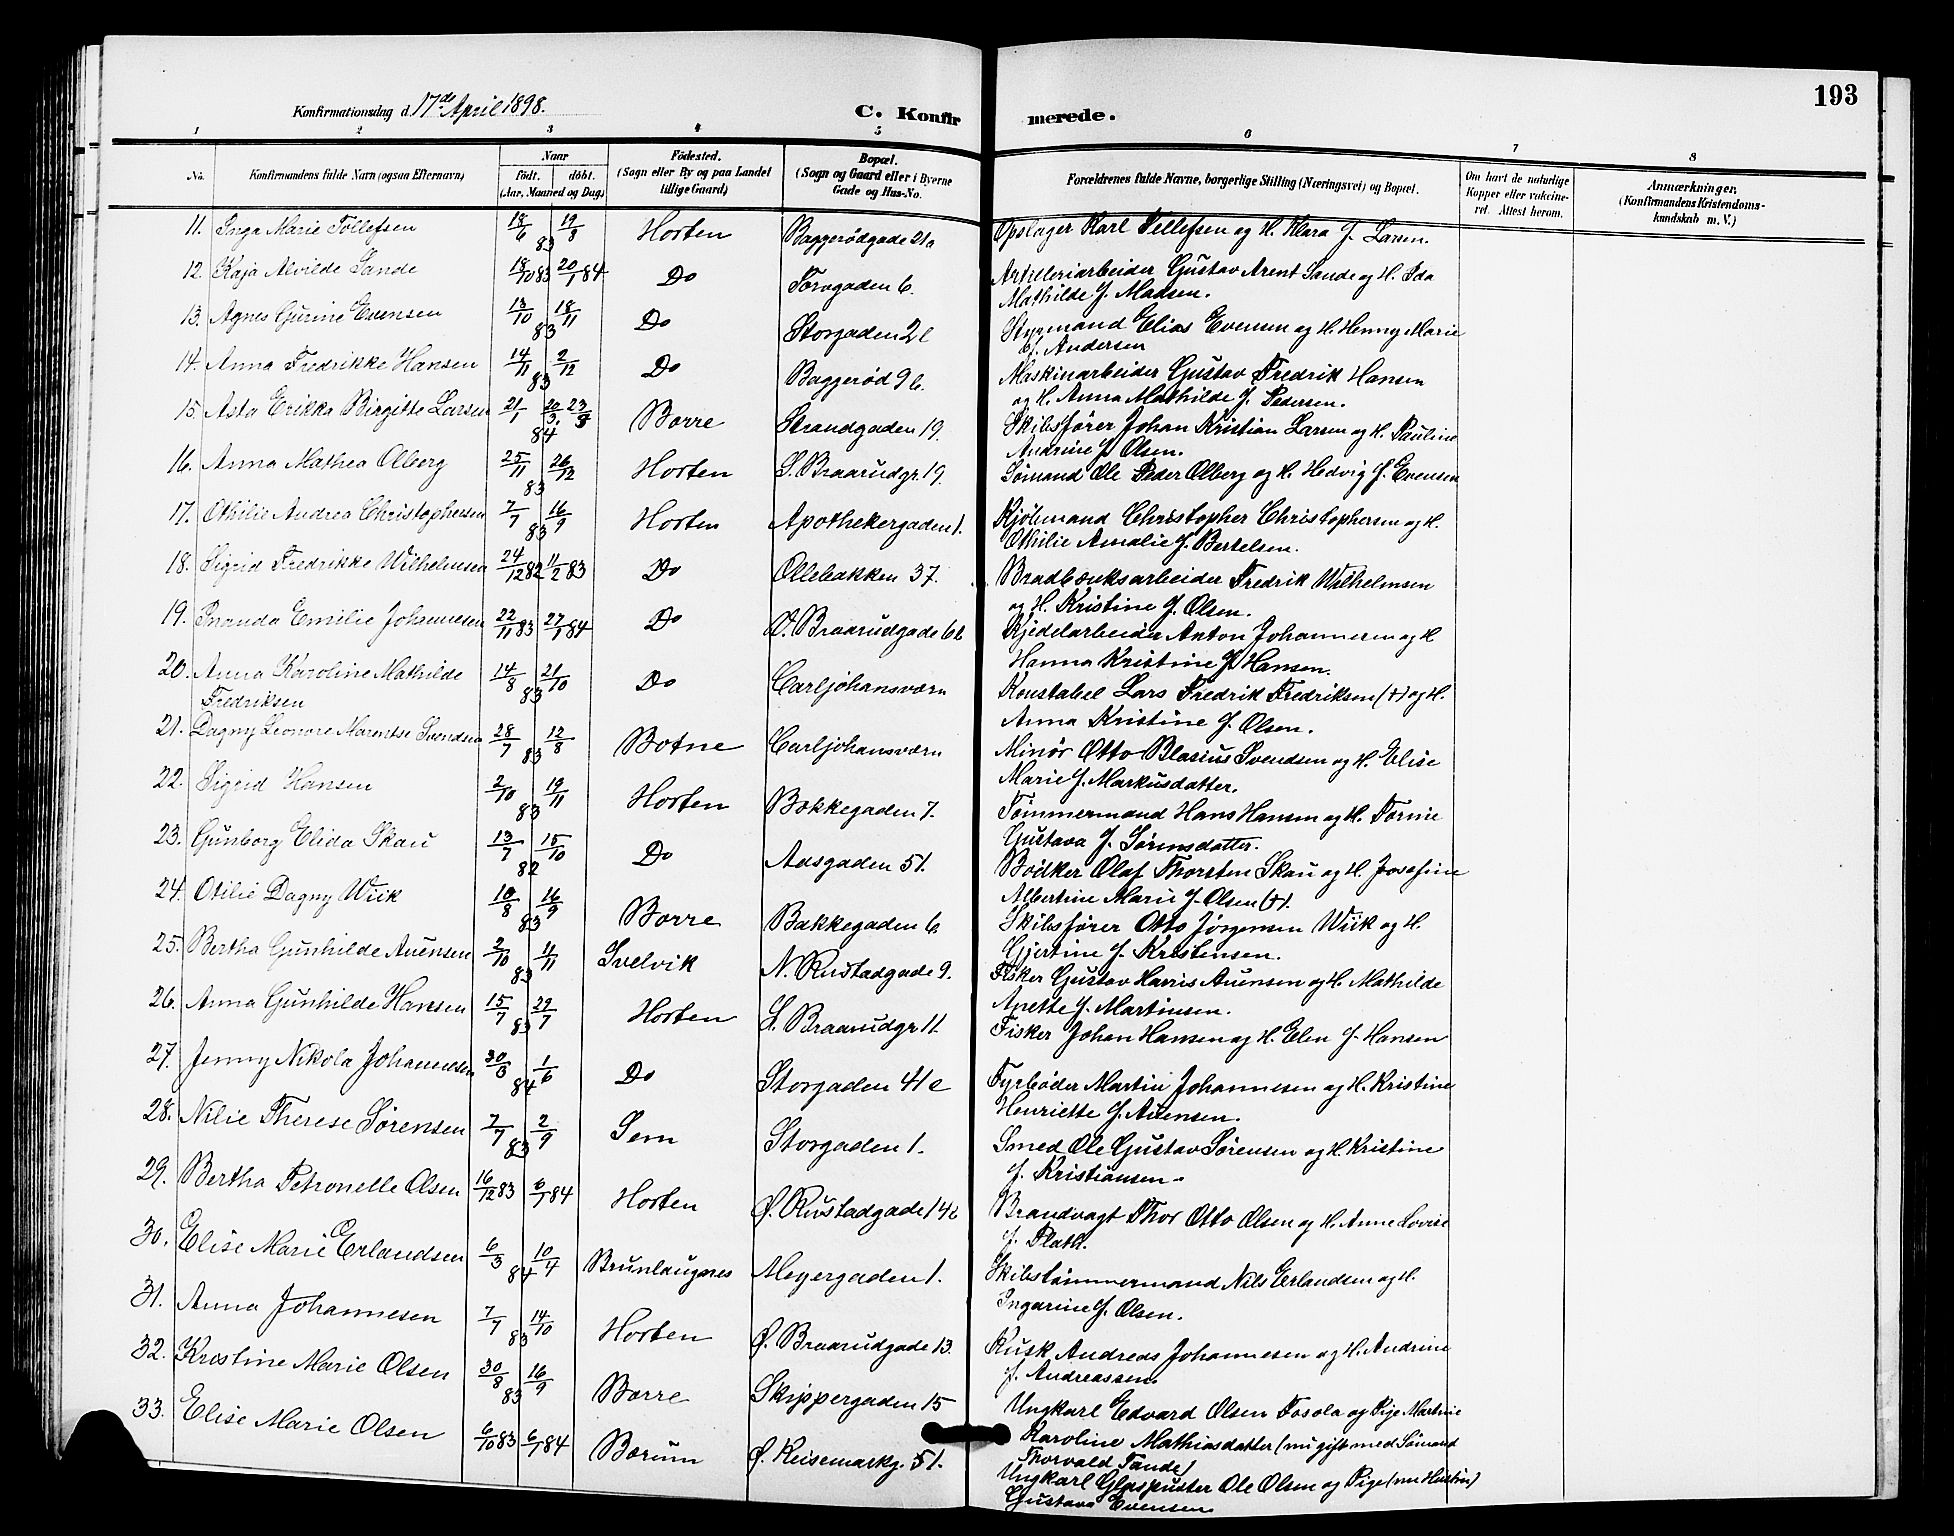 193
Konfirmationsdag d. 17de April 1898.
C. Konfirmerede.
1 2 3 4 5 6 7 8
No. Konfirmandens fulde Navn (ogsaa Efternavn) Naar født. døbt. (Aar, Maaned og Dag) Födested. (Sogn eller By og paa Landet tillige Gaard) Bopæl. (Sogn og Gaard eller i Byerne Gade og Hus-No. Forældrenes fulde Navne, borgerlige Stilling (Næringsvei) og Bopæl. Om havt de naturlige Kopper eller vaccineret. Attest herom. Anmærkninger. (Konfirmandens Kristendomskundskab m. V.)
11. Inga Marie Tollefsen 18/6 19/8 83 Horten Baggerödgade 21a Opslager Karl Tellefsen og H. Klara f. Larsen.
12. Kaja Alvilde Sande 18/10 83 20/1 84 Do Torvgaden 6. Artilleriarbeider Gustav Arent Sande og H. Ida
Mathilde f. Madsen.
13. Agnes Gurine Evensen 13/10 18/11 83 Do Storgaden 2l Styrmand Elias Evensen og H. Henny Marie
f. Andersen
14. Anna Fredrikke Hansen 14/11 2/12 83 Do Baggerød 9b. Maskinarbeider Gustav Fredrik Hansen
og H. Anna Mathilde f. Pedersen.
15. Asta Erikka Birgitte Larsen 21/1 20/3 23/3 84 Borre Strandgaden 19. Skibsfører Johan Kristian Larsen og H. Pauline
Andrine f. Olsen.
16. Anna Mathea Olberg 25/11 26/12 83 Horten S. Braarudgr. 19. Sømand Ole Peder Olberg og H. Hedvig f. Evensen
17. Othilie Andrea Christophersen 7/7 16/9 83 Horten Apothekergaden 1. Kjölsmand Christopher Christophersen og H.
Othilie Amalie f. Bertelsen.
18. Sigrid Fredrikke Wilhelmsen 24/12 82 11/2 83 Do Ollebakken 37. Bradbænksarbeider Fredrik Wilhelmsen
og H. Kristine f. Olsen.
19. Emilie Johannesen 22/11 83 27/1 84 Do V. Braarudgade 6b Kjedelarbeider Anton Johannesen og H
Hanna Kristine f. Hansen.
20. Anna Karoline Mathilde 14/8 21/10 83 Do Carljohansværn Konstabel Lars Fredrik Fredriksen (+) og H.
Fredriksen Anna Kristine f. Olsen.
21. Dagny Leonore Marentse Svendsen 28/7 12/8 83 Botne Carljohansværn Minör Otto Blasius Svendsen og H. Elise
Marie f. Markusdatter.
22. Sigrid Hansen 2/10 19/11 83 Horten Bakkegaden 7. Tömmermand Hans Hansen og H. Torine
Gustava f. Sørensdatter.
23. Gunborg Elida Skau 13/7 15/10 82 Do Aasgaden 51. Bödker Olaf Thorsten Skau og H. Josefine
Albertine Marie f. Olsen (+).
24. Otilie Dagny Wiik 10/8 16/9 83 Borre Bakkegaden 6 Skibsfører Otto Jørgensen Wiik og H.
Gjertine f. Kristensen.
25. Bertha Gunhilde Auensen 2/10 11/11 83 Svelvik N. Rustadgade 9. Fisker Gustav Harris Auensen og H. Mathilde
Anette f. Martinsen.
26. Anna Gunhilde Hansen 15/7 29/7 83 Horten S. Braarudgr 11. Fisker Johan Hansen og H. Elen f. Hansen
27. Jenny Nikola Johannesen 30/3 1/6 84 Do Storgaden 41c Fyrböder Martin Johannesen og H. Kristine
Henriette f. Auensen.
28. Nilie Therese Sørensen 7/7 2/9 83 Sem Storgaden 1. Smed Ole Gustav Sørensen og H Kristine
f. Kristiansen.
29. Bertha Petronelle Olsen 16/12 83 6/1 84 Horten Ø. Rustadgade 14b Brandvagt Thor Otto Olsen og H. Anne Lovise
f. Plath.
30. Elise Marie Erlandsen 6/3 10/4 84 Brunlaugnes Meyergaden 1. Skibstömmermand Nils Erlandsen og H.
Ingarine f. Olsen.
31. Anna Johannesen 7/7 14/10 83 Horten Ø. Braarudgade 13. Kusk Andreas Johannesen og H. Andrine
f. Andreassen.
32. Kristine Marie Olsen 30/8 16/9 83 Borre Skippergaden 15 Ungkarl Edvard Olsen Fosola og Pige Martine
Karoline Mathiasdatter (nu gift med Sømand
Thorvald Tande)
33. Elise Marie Olsen 6/10 83 6/1 84 Bærum Ø. Keisemarkg. 51. Ungkarl Glaspuster Ole Olsen og Pige (nu Hustru)
Gustava Evensen